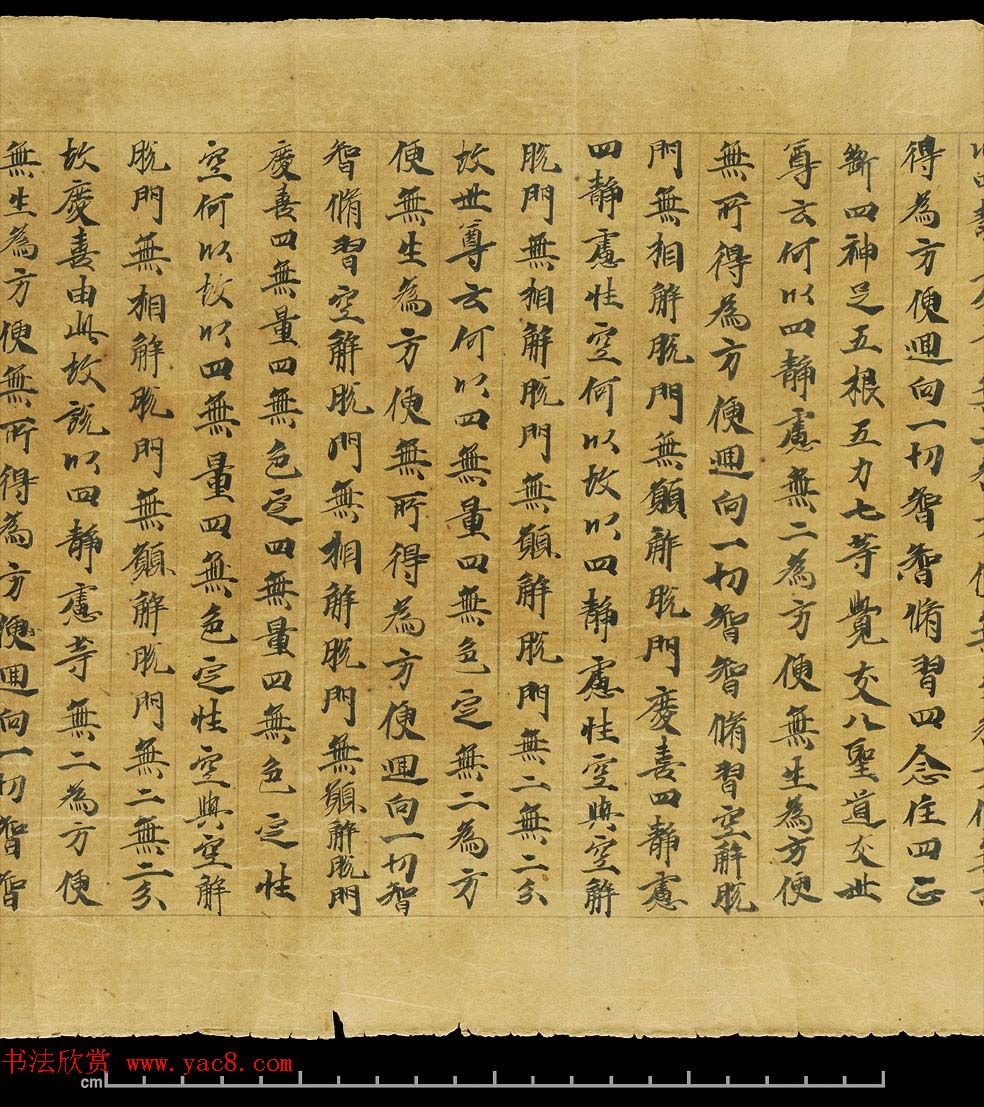 得為方便迴向一切智智脩習四念住四正
斷四神足五根五力七等覺支八聖道支世
尊云何以四靜慮無二為方便無生為方便
無所得為方便迴向一切智智脩習空解脫
門無相解脫門無願解脫門慶喜四靜慮
四靜慮性空何以故以四靜慮性空與空解
脫門無相解脫門無願解脫門無二無二分
故世尊云何以四無量四無色定無二為方
便無生為方便無所得為方便迴向一切智
智脩習空解脫門無相解脫門無願解脫門
慶喜四無量四無色定四無量四無色定性
空何以故以四無量四無色定性空與空解
脫門無相解脫門無願解脫門無二無二分
故慶喜由此故說以四靜慮等無二為方便
無生為方便無所得為方便迴向一切智智
书法欣赏 www.yac8.com
cm